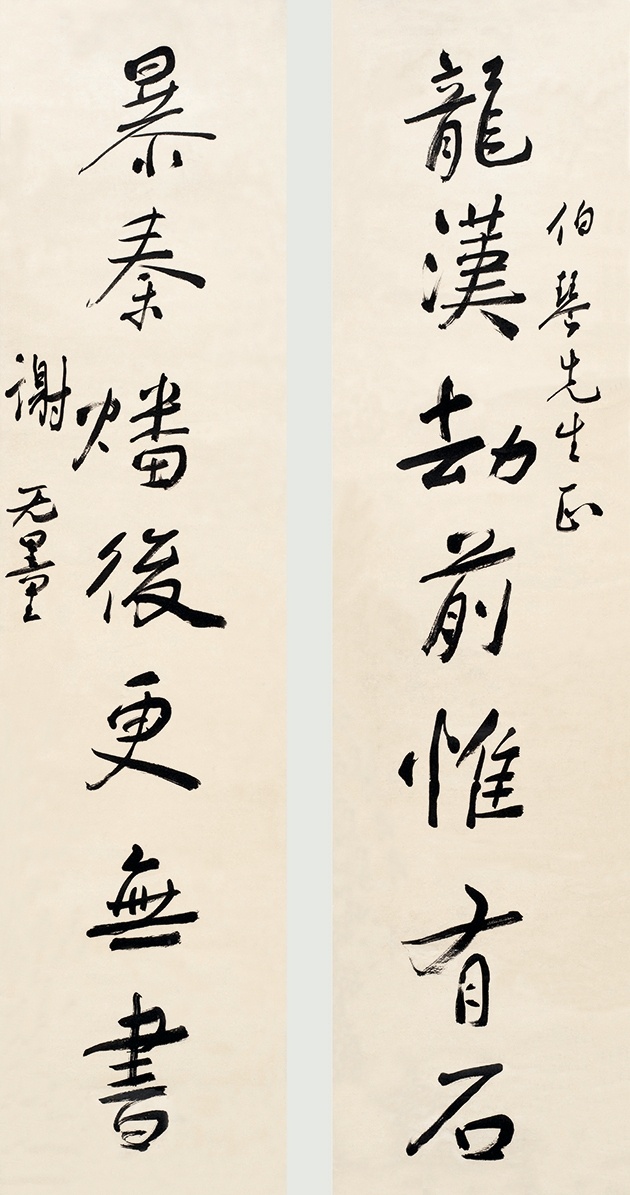 伯琴先生正
龍漢劫前惟有石
暴秦燔後更無書
謝无量